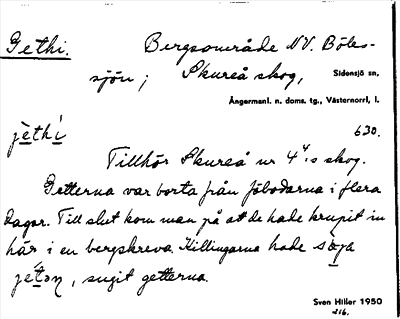 Gethi. Bergsområde NV. Böles-
sjön; Skureå skog, Sidensjö sn,
Ångermanl. n. doms. tg., Västernorrl, l.
jèthí 630.
Tillhör Skureå nr 4⁴:s skog.
Getterna var borta från fäbodarna i flera
dagar. Till slut kom man på at de hade krupit in
här i en bergskreva. Killingarna hade
sugit getterna.
Sven Hiller 1950
216.